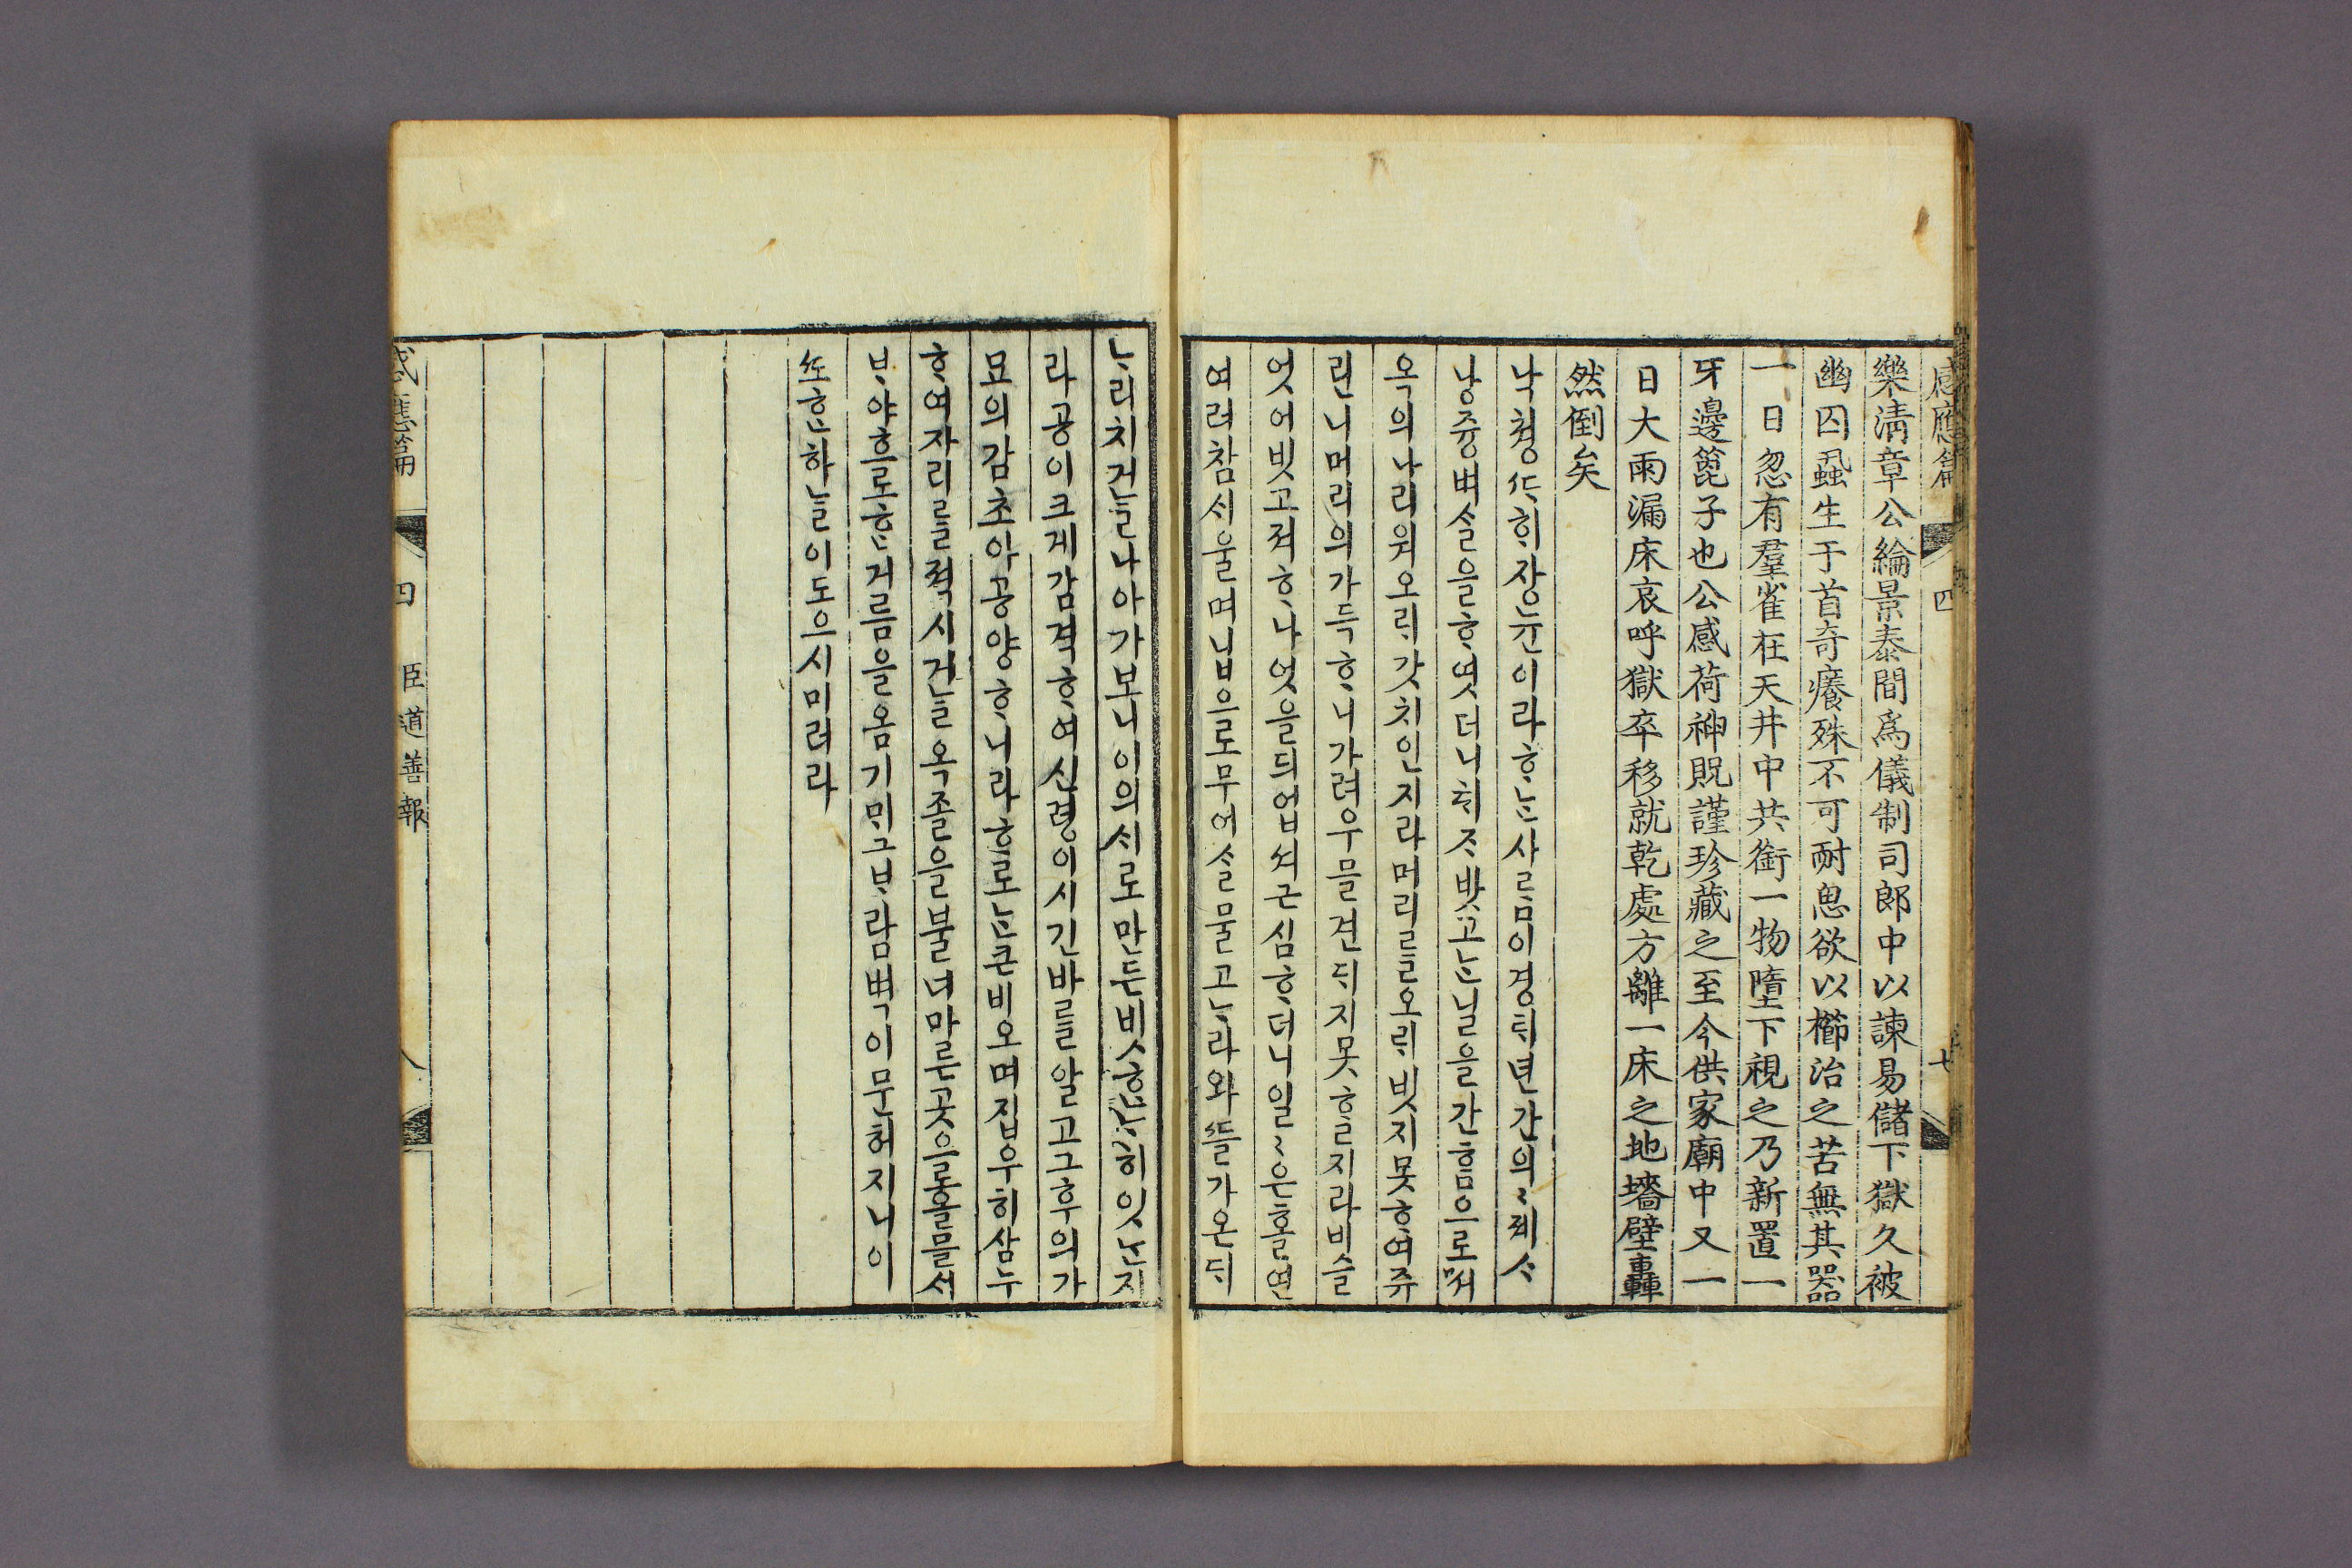 感應篇 四 七
樂淸章公綸景泰間爲儀制司郎中以諫易儲下獄久被
幽囚蝨生于首奇癢殊不可耐思欲以櫛治之苦無其器
一日忽有羣雀在天井中共銜一物墮下視之乃新置一
牙邊篦子也公感荷神貺謹珍藏之至今供家廟中又一
日大雨漏床哀呼獄卒移就乾處方離一床之地墻壁轟
然倒矣
낙쳥ᄯᅡ히쟝뉸이라ᄒᆞᄂᆞᆫ사ᄅᆞᆷ이경ᄐᆡ년간의〻졔ᄉᆞ
낭즁벼ᄉᆞᆯ을ᄒᆞ엿더니ᄐᆡᄌᆞ밧고ᄂᆞᆫ닐을간ᄒᆞᆷ으로ᄡᅥ
옥의나리워오ᄅᆡ갓치인지라머리ᄅᆞᆯ오ᄅᆡ빗지못ᄒᆞ여쥬
린니머리의가득ᄒᆞ니가려우믈견ᄃᆡ지못ᄒᆞᆯ지라비슬
엇어빗고져ᄒᆞ나엇을듸업셔근심ᄒᆞ더니일〻은홀연
여러참ᄉᆡ울며닙으로무어ᄉᆞᆯ물고ᄂᆞ라와ᄯᅳᆯ가온ᄃᆡ
ᄂᆞ리치거ᄂᆞᆯ나아가보니이의ᄉᆡ로만든빗ᄒᆞᆫᄂᆞ히잇ᄂᆞᆫ지
라공이크게감격ᄒᆞ여신령이시긴바ᄅᆞᆯ알고그후의가
묘의감초아공양ᄒᆞ니라ᄒᆞᄅᆞ로ᄂᆞᆫ큰비오며집우히삼누
ᄒᆞ여자리ᄅᆞᆯ젹시거ᄂᆞᆯ옥졸을불너마른곳으로올믈ᄉᆡ
ᄇᆞ야흐로ᄒᆞᆫ거름을옴기ᄆᆡ그ᄇᆞ람벽이문허지니이
ᄯᅩᄒᆞᆫ하ᄂᆞᆯ이도으시미러라
感應篇 四 臣道善報 八